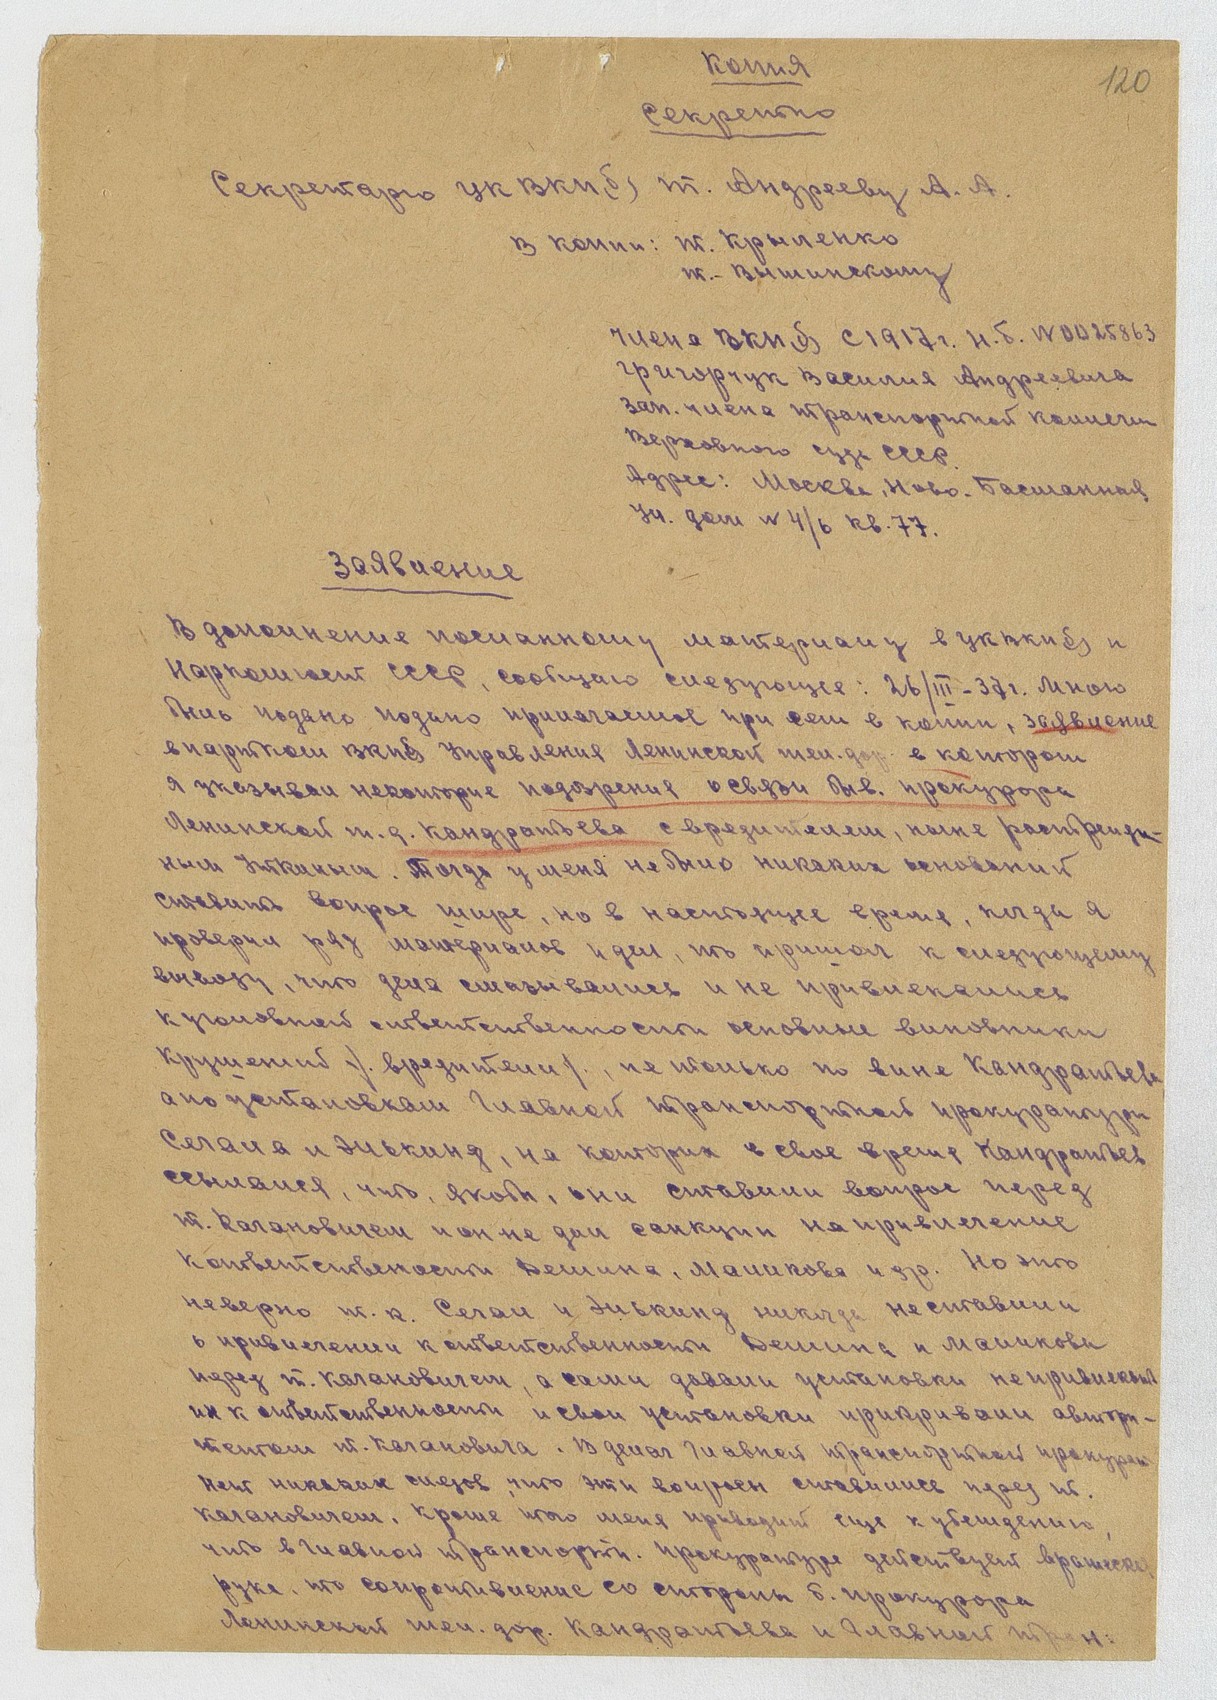 Копия
120
Секретно
Секретарю ЦК ВКП(б) т. Андрееву А. А.
В копии: т. Крыленко
т. Вышинскому
члена ВКП(б) с 1917 г. п.б. № 0025863
Григорчук Василия Андреевича
зап. члена транспортной коллегии
Верховного суда СССР.
Адрес: Москва, Ново-Басманная
ул. дом № 4/6 кв. 77.
Заявление
В дополнение посланному материалу в ЦКВКП(б) и
Наркомюст СССР, сообщаю следующее: 26/III-37г. мною
было подано подано прилагаемое при сем в копии, заявление
в партком ВКП(б) Управления Ленинской жел.дор. в котором
я указывал некоторые подозрения о связи быв. прокурора
Ленинской ж.д. Кандратьева с вредителем, ныне растреля-
ным Уткиным. Тогда у меня небыло никаких оснований
ставить вопрос шире, но в настоящее время, когда я
проверил ряд материалов и дел, то пришол к следующему
выводу, что дела смазывались и не привлекались
к уголовной ответственности основные виновники
крушений /. вредители /., не только по вине Кандратьева
а по установкам Главной транспортной прокуратури
Сегала и Элькинд, на которых в свое время Кандратьев
ссылался, что, якобы, они ставили вопрос перед
т. Кагановичем и он не дал санкции на привлечение
к ответственности Дешина, Маликова и др. Но это
неверно т. к. Сегал и Элькинд никогда неставили
о привлечении к ответственности Дешина и Маликова
перед т. Кагановичем, а сами давали установки непривлекать
их к ответственности и свои установки прикривали автори-
тетом т. Кагановича. В делах Главной транспортной прокурат.
нет никаких следов, что эти вопросы ставились перед т.
Кагановичем. Кроме того меня приводит еще к убеждению,
что в Главной транспорт. прокуратуре действует вражеская
рука, то сопротивление со стороны б. прокурора
Ленинской жел. дор. Кандратьева и Главной тран: